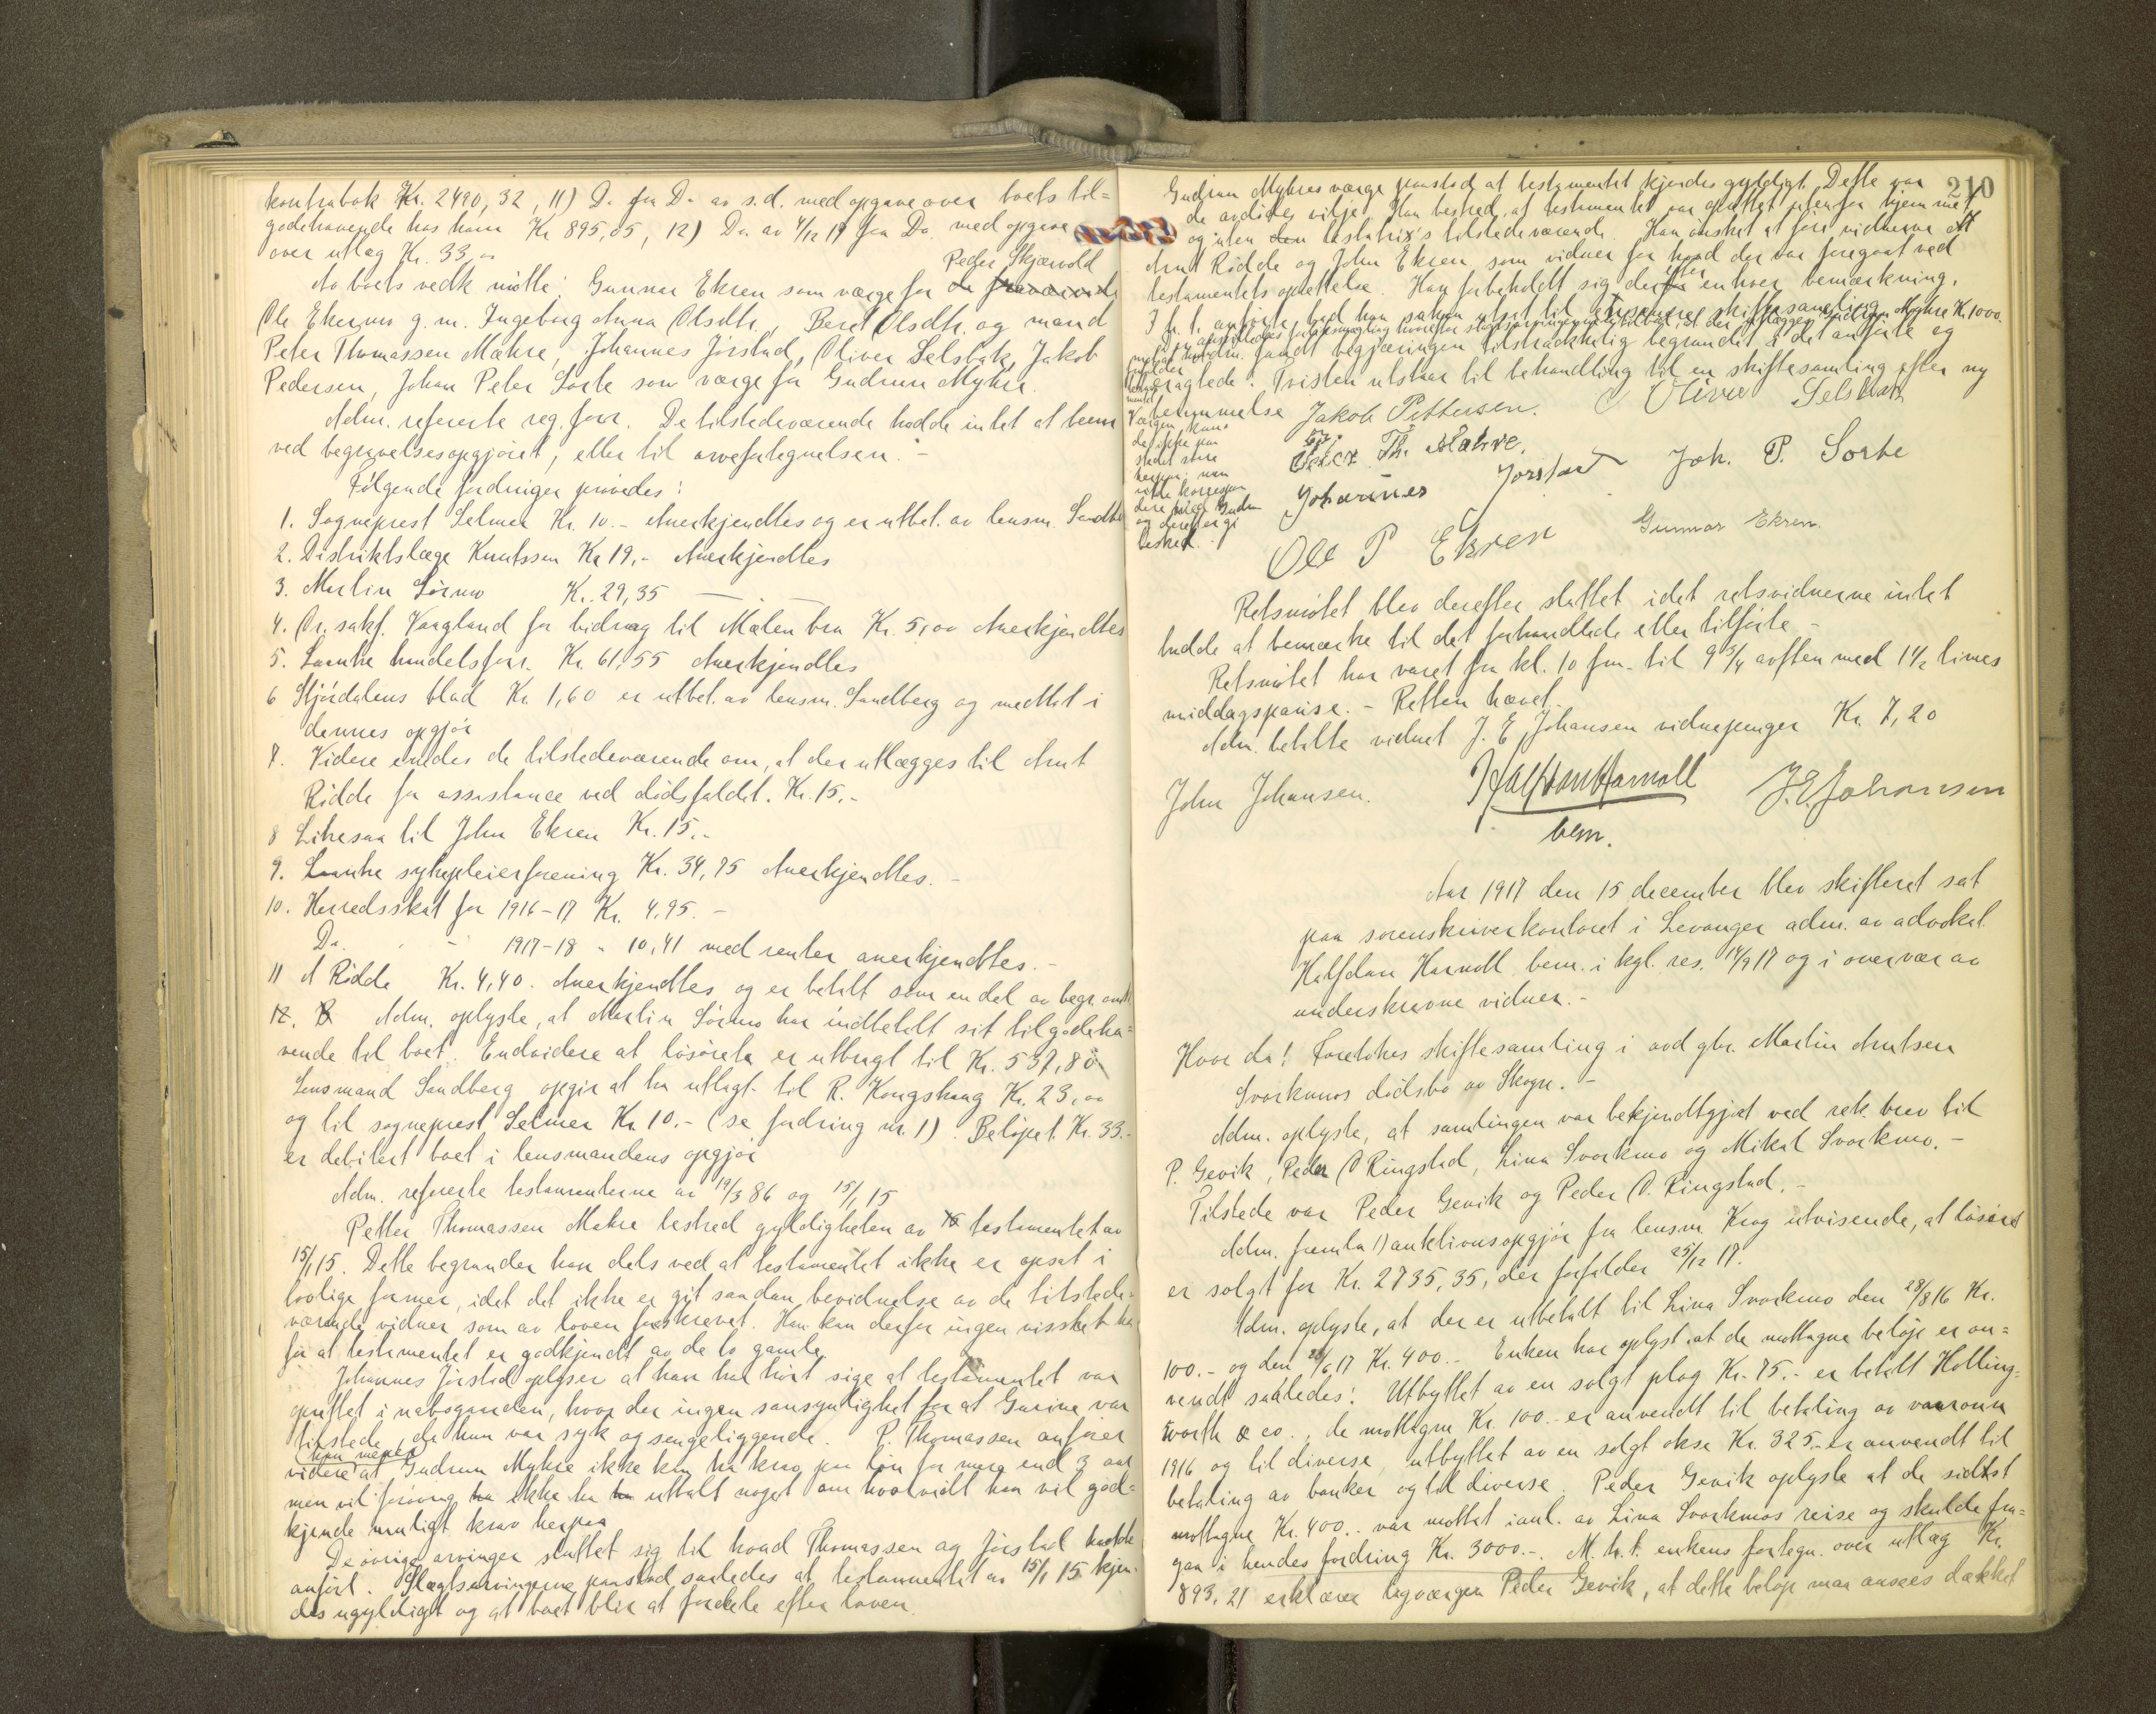 kontrabok Kr. 2490,32, 11) Do. fra Do. av s.d. med opgave over boets til=
godehavende hos ham Kr 895,05, 12) Do. av 4/12 17 fra Do. med opgave
over utlæg Kr. 33,00
Peder Skjærvold
Av boets vedk. møtte: Gunnar Ekren som værge for
Ole Ekrenes g.m. Ingeborg Anna Olsdtr., Beret Olsdtr. og mand
Peter Thomassen Mækre, Johannes Jörstad, Oliver Selsbak, Jakob
Pedersen, Johan Peter Sorte som værge for Gudrun Mykre.
Adm. refererte reg. forr. De tilstedeværende hadde intet at bem
ved begravelsesopgjöret, eller til arvefortegnelsen. -
Følgende fordringer prövedes:
1. Sogneprest Selmer Kr. 10.- Anerkjendtes og er utbet. av lensm. Sandb
2. Distriktslæge Knutssen Kr 19,- Anerkjendtes
3. Martin Sörmo Kr. 29,35 — . —
4. Or. sakf. Vaagland for bidrag til Mælen bru Kr. 5,00 Anerkjendtes
5. Laanke handelsforr. Kr. 61,55 Anerkjendtes
6 Stjördalens blad Kr. 1,60 er utbet. av lensm. Sandberg og medtat i
dennes opgjör
7. Videre enedes de tilstedeværende om, at der utlægges til Arnt
Rödde for assistance ved dödsfaldet. Kr. 15.-
8 Likesaa til John Ekren Kr. 15.-
9. Laanke sykepleierforening Kr. 34,75 Anerkjendtes. -
10. Herredsskat for 1916-17 Kr. 4,95. -
Do. - 1917-18 " 10,41 med renter anerkjendtes. -
11 A Rödde Kr. 4,40. Anerkjendtes og er betalt som en del av begr. omk
12. Adm. oplyste, at Martin Sörmo har indbetalt sit tilgodeha=
vende til boet. Endvidere at lösöret er utbragt til Kr. 537,80
Lensmand Sandberg opgir at ha utlagt til R. Kongshaug Kr. 23,00
og til sogneprest Selmer Kr 10.- (se fordring nr. 1). Belöpet Kr. 33.-
er debitert boet i lensmandens opgjör
Adm. refererte testamenterne av 19/3 86 og 15/1 15
Petter Thomassen Mækre bestred gyldigheten av testamentet av
15/1 15. Dette begrunder han dels ved at testamentet ikke er opsat i
lovlige former, idet det ikke er git saadan bevidnelse av de tilstede=
værende vidner som av loven foreskrevet. Han kan derfor ingen visshet ha
for at testamentet er godkjendt av de to gamle.
Johannes Jörstad oplyser at han har hört sige at testamentet var
oprettet i nabogaarden, hvor der ingen sansynlighet for at Gurine var
tilstede, da hun var syk og sengeliggende. P. Thomassen anförer
han mener
videre at Gudrun Mykre ikke kan ha krav paa lön for mere end 3 aar
men vil forövrig ikke ha uttalt noget om hvorvidt han vil god=
kjende muligt krav herpaa
De övrige arvinger sluttet sig til hvad Thomassen og Jörstad hadde
anfört. Slægtsarvingerne paastod saaledes at testamentet av 15/1 15 kjen-
des ugyldigt og at boet blir at fordele efter loven.
210
Gudrun Mykres værge paastod at testamentet kjendes gyldigt. Dette var
de avdödes vilje. Han bestred, at testamentet var oprettet utenfor hjemmet
og uten testatrix's tilstedeværende. Han önsket at före vidnerne
Arnt Rödde og John Ekren som vidner for hvad der var foregaat ved
testamentets oprettelse. Han forbeholdt sig derefter enhver bemærkning.
I h. t. anförte bad han saken utsat til en senere skiftesamling
Adm. fandt begjæringen tilstrækkelig begrundet i det anförte og
. Tvisten utstaar til behandling til en skiftesamling efter ny
bestemmelse Jakob Pettersen. Oliver Selsbak
Værgen kun-
de ikke paa
stedet svare
herpaa, men
vilde korrespon
dere med Gudrun
og derefter gi
besked.
Peter Th. Mækre.
Johannes Jörstad Joh. P. Sorte
Ole P Ekren Gunnar Ekren.
Retsmötet blev derefter sluttet idet retsvidnerne intet
hadde at bemærke til det forhandlede eller tilförte -
Retsmötet har varet fra kl. 10 fm. til 9 3/4 aften med 1 1/2 times
middagspause. - Retten hævet.
Adm. betalte vidnet J. E. Johansen vidnepenger Kr. 7,20
John Johansen. Halfdan Harnoll J. E. Johansen
bem.
Aar 1917 den 15 december blev skifteret sat
paa sorenskriverkontoret i Levanger adm. av advokat
Halfdan Harnoll bem. i kgl. res. 14/9 17 og i overvær av
underskrevne vidner. -
Hvor da! Foretokes skiftesamling i avd gbr. Martin Arntsen
Svorkmos dödsbo av Skogn. -
Adm. oplyste, at samlingen var bekjendtgjort ved rek. brev til
P. Gevik, Peder O Ringstad, Lina Svorkmo og Mikal Svorkmo. -
Tilstede var Peder Gevik og Peder O. Ringstad. -
Adm. fremla 1) auktionsopgjör fra lensm. Krog utvisende, at lösöret
er solgt for Kr. 2735,35, der forfalder 25/12 17.
Adm. oplyste, at der er utbetalt til Lina Svorkmo den 28/8 16 Kr.
100.- og den 28/6 17 Kr. 400.- Enken har oplyst at de mottagne belöp er an=
vendt saaledes! Utbyttet av en solgt plog Kr. 75.- er betalt Holling=
worth & co., de mottagne Kr. 100.- er anvendt til betaling av vaaronn
1916 og til diverse, utbyttet av en solgt okse Kr. 325.- er anvendt til
betaling av banker og til diverse. Peder Gevik oplyste at de sidst
mottagne Kr. 400.- var mottat i anl. av Lina Svorkmos reise og skulde fra=
gaa i hendes fordring Kr. 3000.-. M. h. t. enkens fortegn. over utlæg Kr.
893,21 erklærer lagværgen Peder Gevik, at dette belöp maa ansees dækket